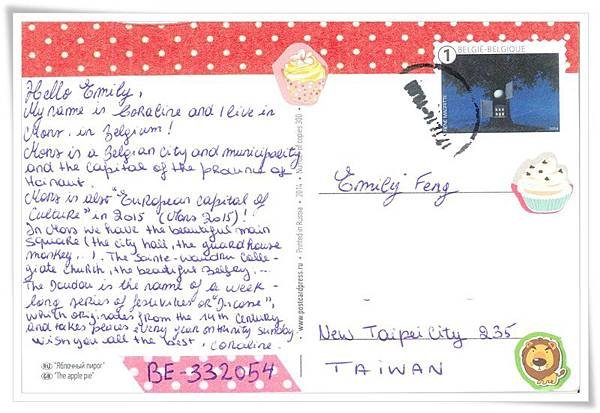 Hello Emily,
My name is Coraline and I live in
Mons, in Belgium!
Mons is a Belgian city and municipality
and the capital of the province of
Hainaut.
Mons is also "European capital of
Culture" in 2015 (Mons 2015)!
In Mons we have the beautiful main
square (the city hall, the guardhouse
monkey...). The Sainte-Waudru Colle-
giate church, the beautiful Belfry...
The Doudou is the name of a week-
long series of festivities or
which originates from the 14th century
and takes places every year on trinity Sunday
Wish you all the best, Coraline.
RU "Яблочный пирог"
GB "The apple pie"
BE-332054
www.postcardpress.ru • Printed in Russia • 2014 • Number of copies 300
1 BELGIË-BELGIQUE
Emily Feng
New Taipei City 235
TAIWAN